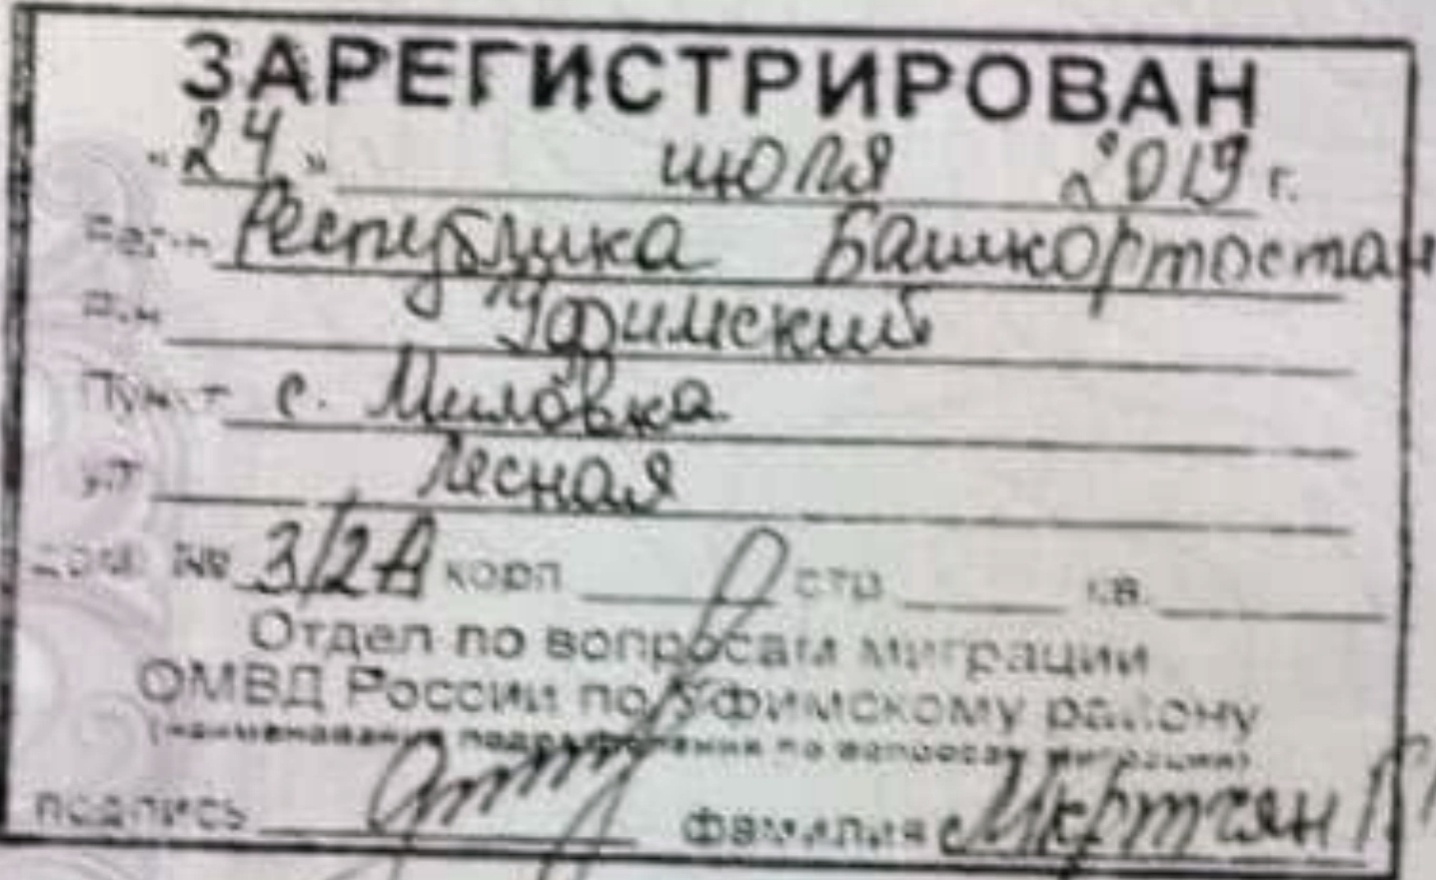 ЗАРЕГИСТРИРОВАН
«24» июля 2019 г.
Рег-н Республика Башкортостан
Р-н Уфимский
Пункт с. Миловка
ул Лесная
дом № 3/2А корп стр кв.
Отдел по вопросам миграции
ОМВД России по Уфимскому району
(наименование подразделения по вопросам миграции)
подпись фамилия Мкртчян